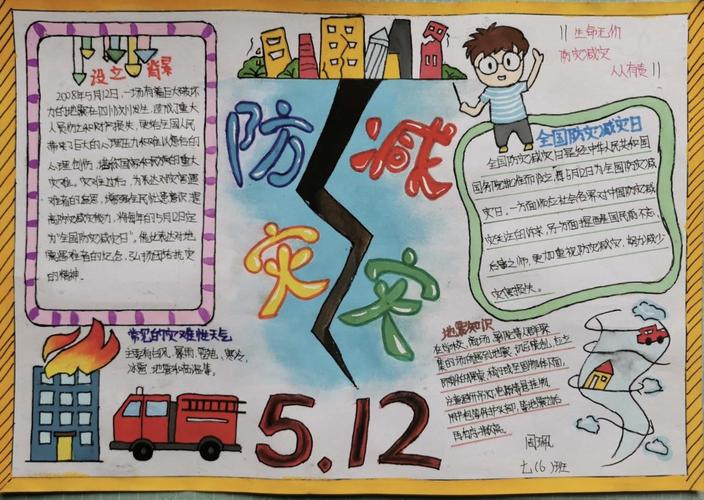 设立背景
2008年5月12日,一场有着巨大破坏
力的地震在四川汶川发生,造成了重大
人员伤亡和财产损失,更给全国人民
带来了巨大的心理压力和难以愈合的
心理创伤,国家和民族的重大
灾难。灾难过后,为表达对灾害遇
难者的哀思,增强全民忧患意识,提
高防灾减灾能力,将每年的5月12日定
为“全国防灾减灾日”,借此表达对地
震遇难者的纪念,弘扬团结抗灾
的精神.
防减
灾灾
5.12
生命无价
防灾减灾
人人有责
全国防灾减灾日
全国防灾减灾日是经中华人民共和国
国务院批准而设立,每5月12日为全国防灾减
灾日。一方面顺应社会各界对中国防灾减
灾关注的诉求,另一方面提醒国民前事不忘、
后事之师,更加重视防灾减灾,努力减少
灾害损失。
常见的灾难性天气
主要有台风、暴雨、雪、寒冷、
冰雹、地震和
地震知识
在学校、商场、等人群聚
集的场所遇到地震,
周珮
七(6)班